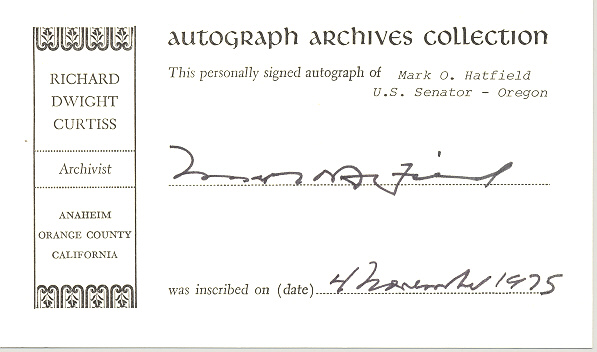 AUTOGRAPH ARCHIVES COLLECTION
RICHARD
DWIGHT
CURTISS
Archivist
ANAHEIM
ORANGE COUNTY
CALIFORNIA
This personally signed autograph of Mark O. Hatfield
U.S. Senator - Oregon
Mark O Hatfield
was inscribed on (date) 4 November 1975